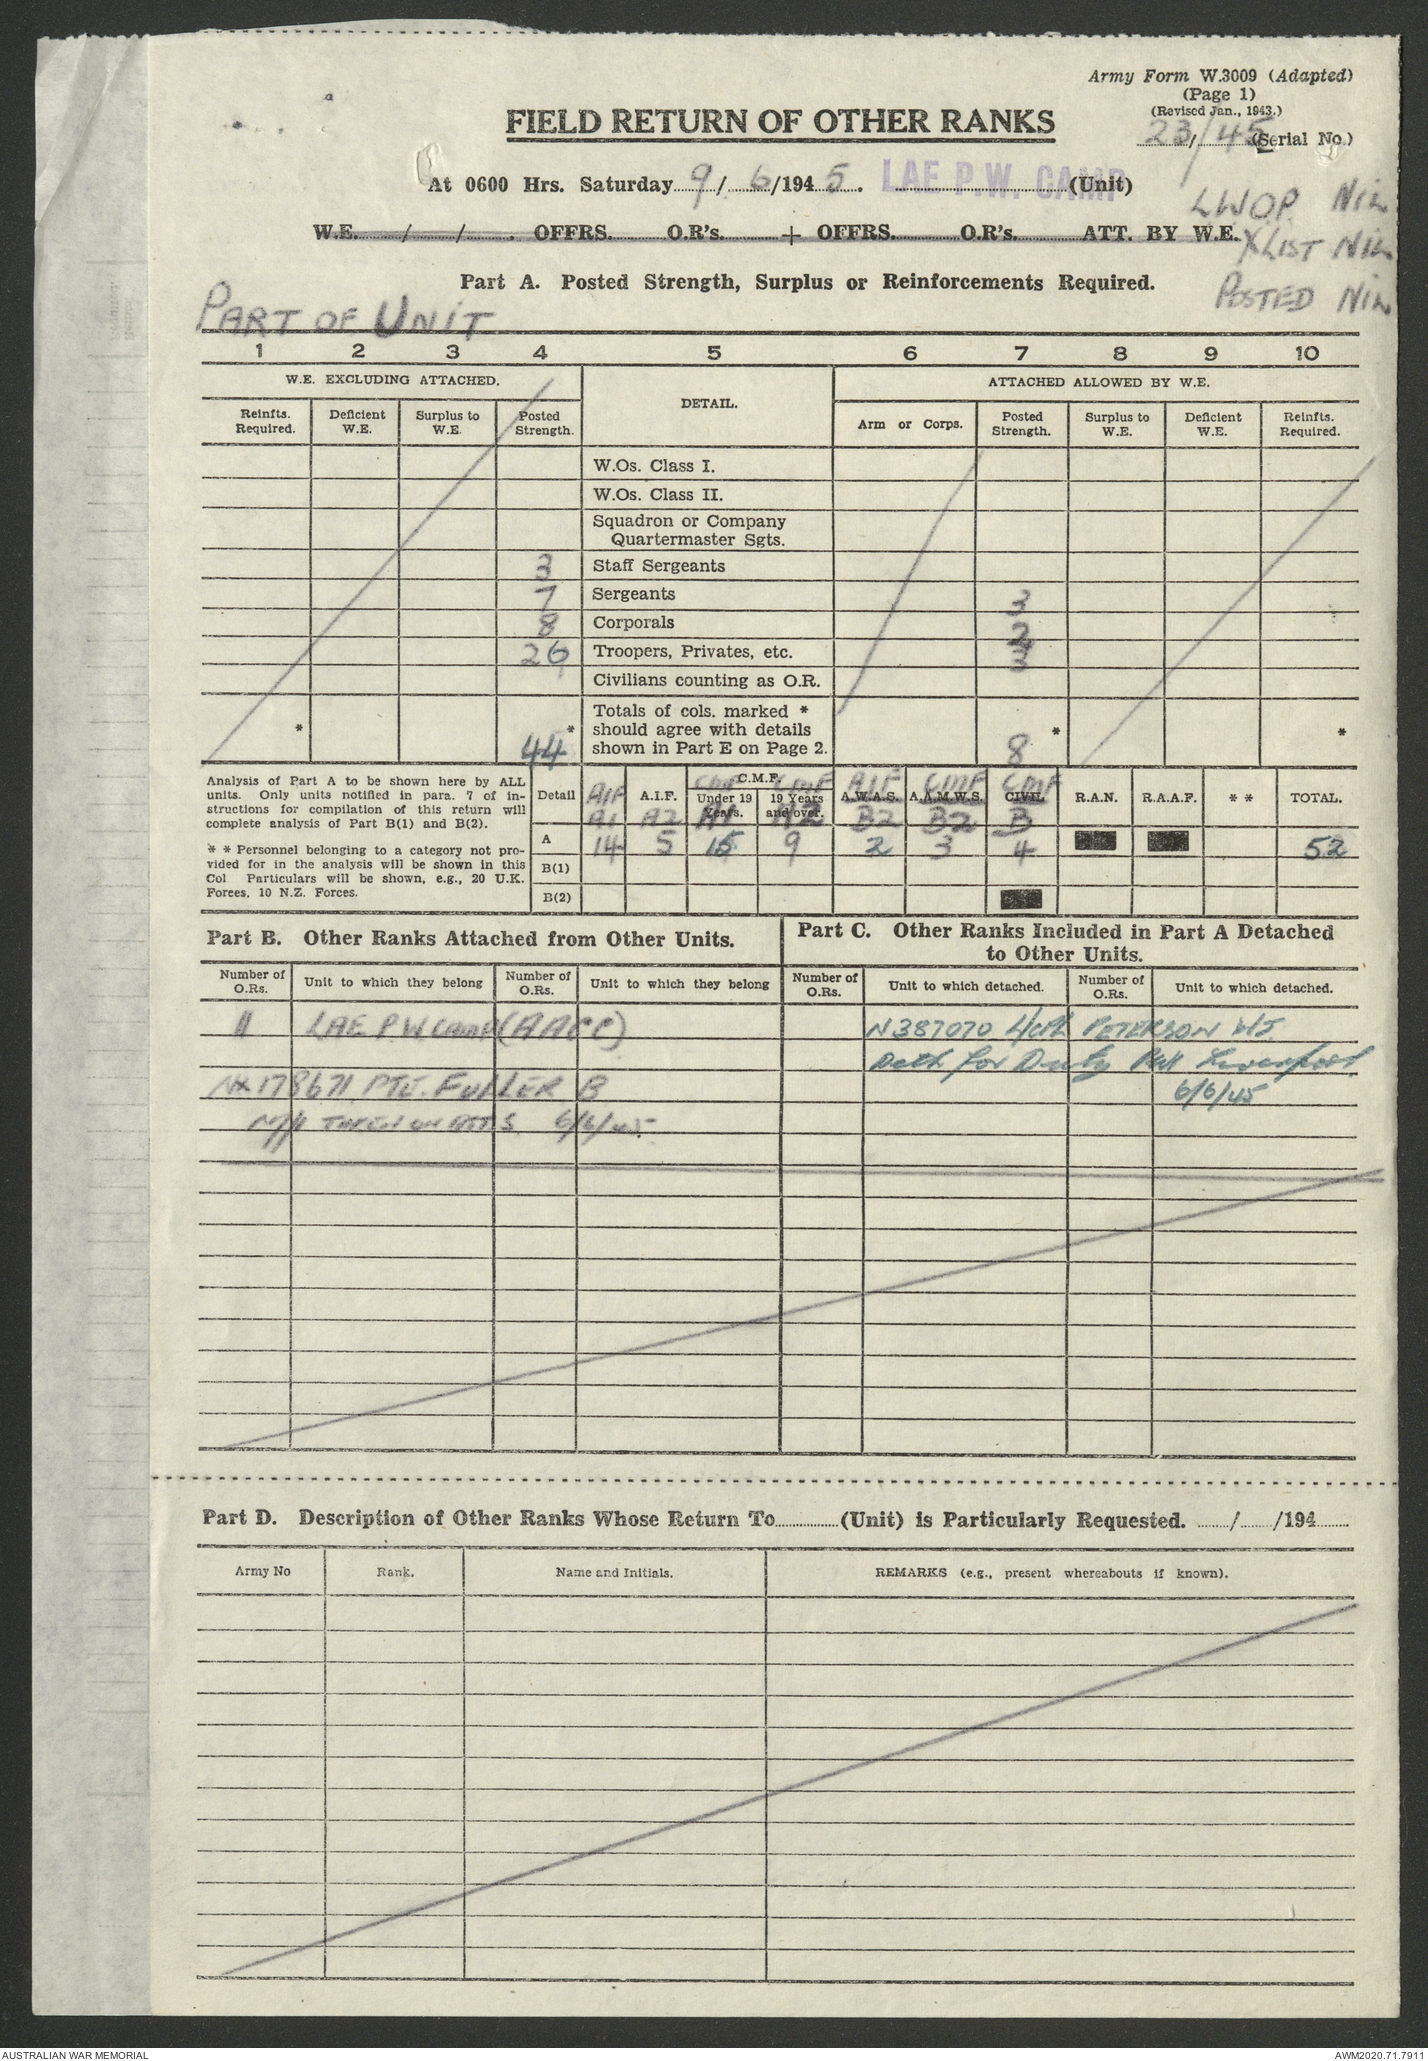 Army Form W.3009 (Adapted)
(Page 1)
(Revised Jan., 1943.)
23/45 (Serial No.)
FIELD RETURN OF OTHER RANKS
At 0600 Hrs. Saturday 9/6/1945. LAE P.W. CAMP (Unit)
LWOP NIL
W.E. / / . OFFRS. O.R's. + OFFRS. O.R's. ATT. BY W.E.
X LIST NIL
Part A. Posted Strength, Surplus or Reinforcements Required.
POSTED NIL
PART OF UNIT
1 2 3 4 5 6 7 8 9 10
W.E. EXCLUDING ATTACHED. DETAIL. ATTACHED ALLOWED BY W.E.
Reinfts. Required. Deficient W.E. Surplus to W.E. Posted Strength. Arm or Corps. Posted Strength. Surplus to W.E. Deficient W.E. Reinfts. Required.
W.Os. Class I.
W.Os. Class II.
Squadron or Company
Quartermaster Sgts.
3 Staff Sergeants
7 Sergeants 3
8 Corporals 2
26 Troopers, Privates, etc. 3
Civilians counting as O.R.
Totals of cols. marked *
* * should agree with details * *
44 shown in Part E on Page 2. 8
Analysis of Part A to be shown here by ALL
units. Only units notified in para. 7 of in-
structions for compilation of this return will
complete analysis of Part B(1) and B(2).
* * Personnel belonging to a category not pro-
vided for in the analysis will be shown in this
Col Particulars will be shown, e.g., 20 U.K.
Forces, 10 N.Z. Forces.
CMF C.M.F. CMF AIF CMF CMF
Detail AIF A.I.F. Under 19 Years. 19 Years and over. A.W.A.S. A.A.M.W.S. CIVIL R.A.N. R.A.A.F. * * TOTAL.
A1 A2 A1 A2 B2 B2 B
A 14 5 15 9 2 3 4 52
B(1)
B(2)
Part B. Other Ranks Attached from Other Units.
Part C. Other Ranks Included in Part A Detached
to Other Units.
Number of O.Rs. Unit to which they belong Number of O.Rs. Unit to which they belong Number of O.Rs. Unit to which detached. Number of O.Rs. Unit to which detached.
11 LAE P W CAMP (AACC) N387070 L/CPL PETERSON WJ.
Deth for Duty Liverpool
NX178671 PTE. FULLER B 6/6/45
TAKEN ON ATT S. 6/6/45
Part D. Description of Other Ranks Whose Return To (Unit) is Particularly Requested. / /194
Army No Rank. Name and Initials. REMARKS (e.g., present whereabouts if known).
AUSTRALIAN WAR MEMORIAL AWM2020.71.7911